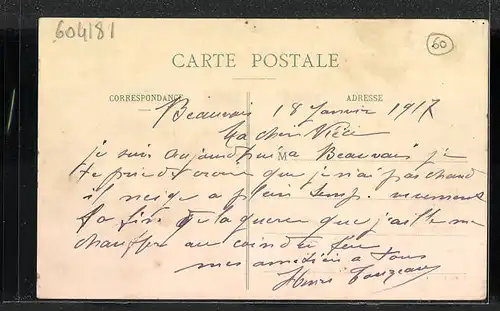 604181
60
CARTE POSTALE
CORRESPONDANCE
ADRESSE
Beauvais 18 Janvier 1917
Ma cher Nièce
M
je suis aujourd'hui a Beauvais je
te prie de croire que je n'ai pas chaud
il neige a plein temp. vivement
la fin de la guerre que j'aille me
chauffer au coin du feu
mes amitiés a tous
Henri